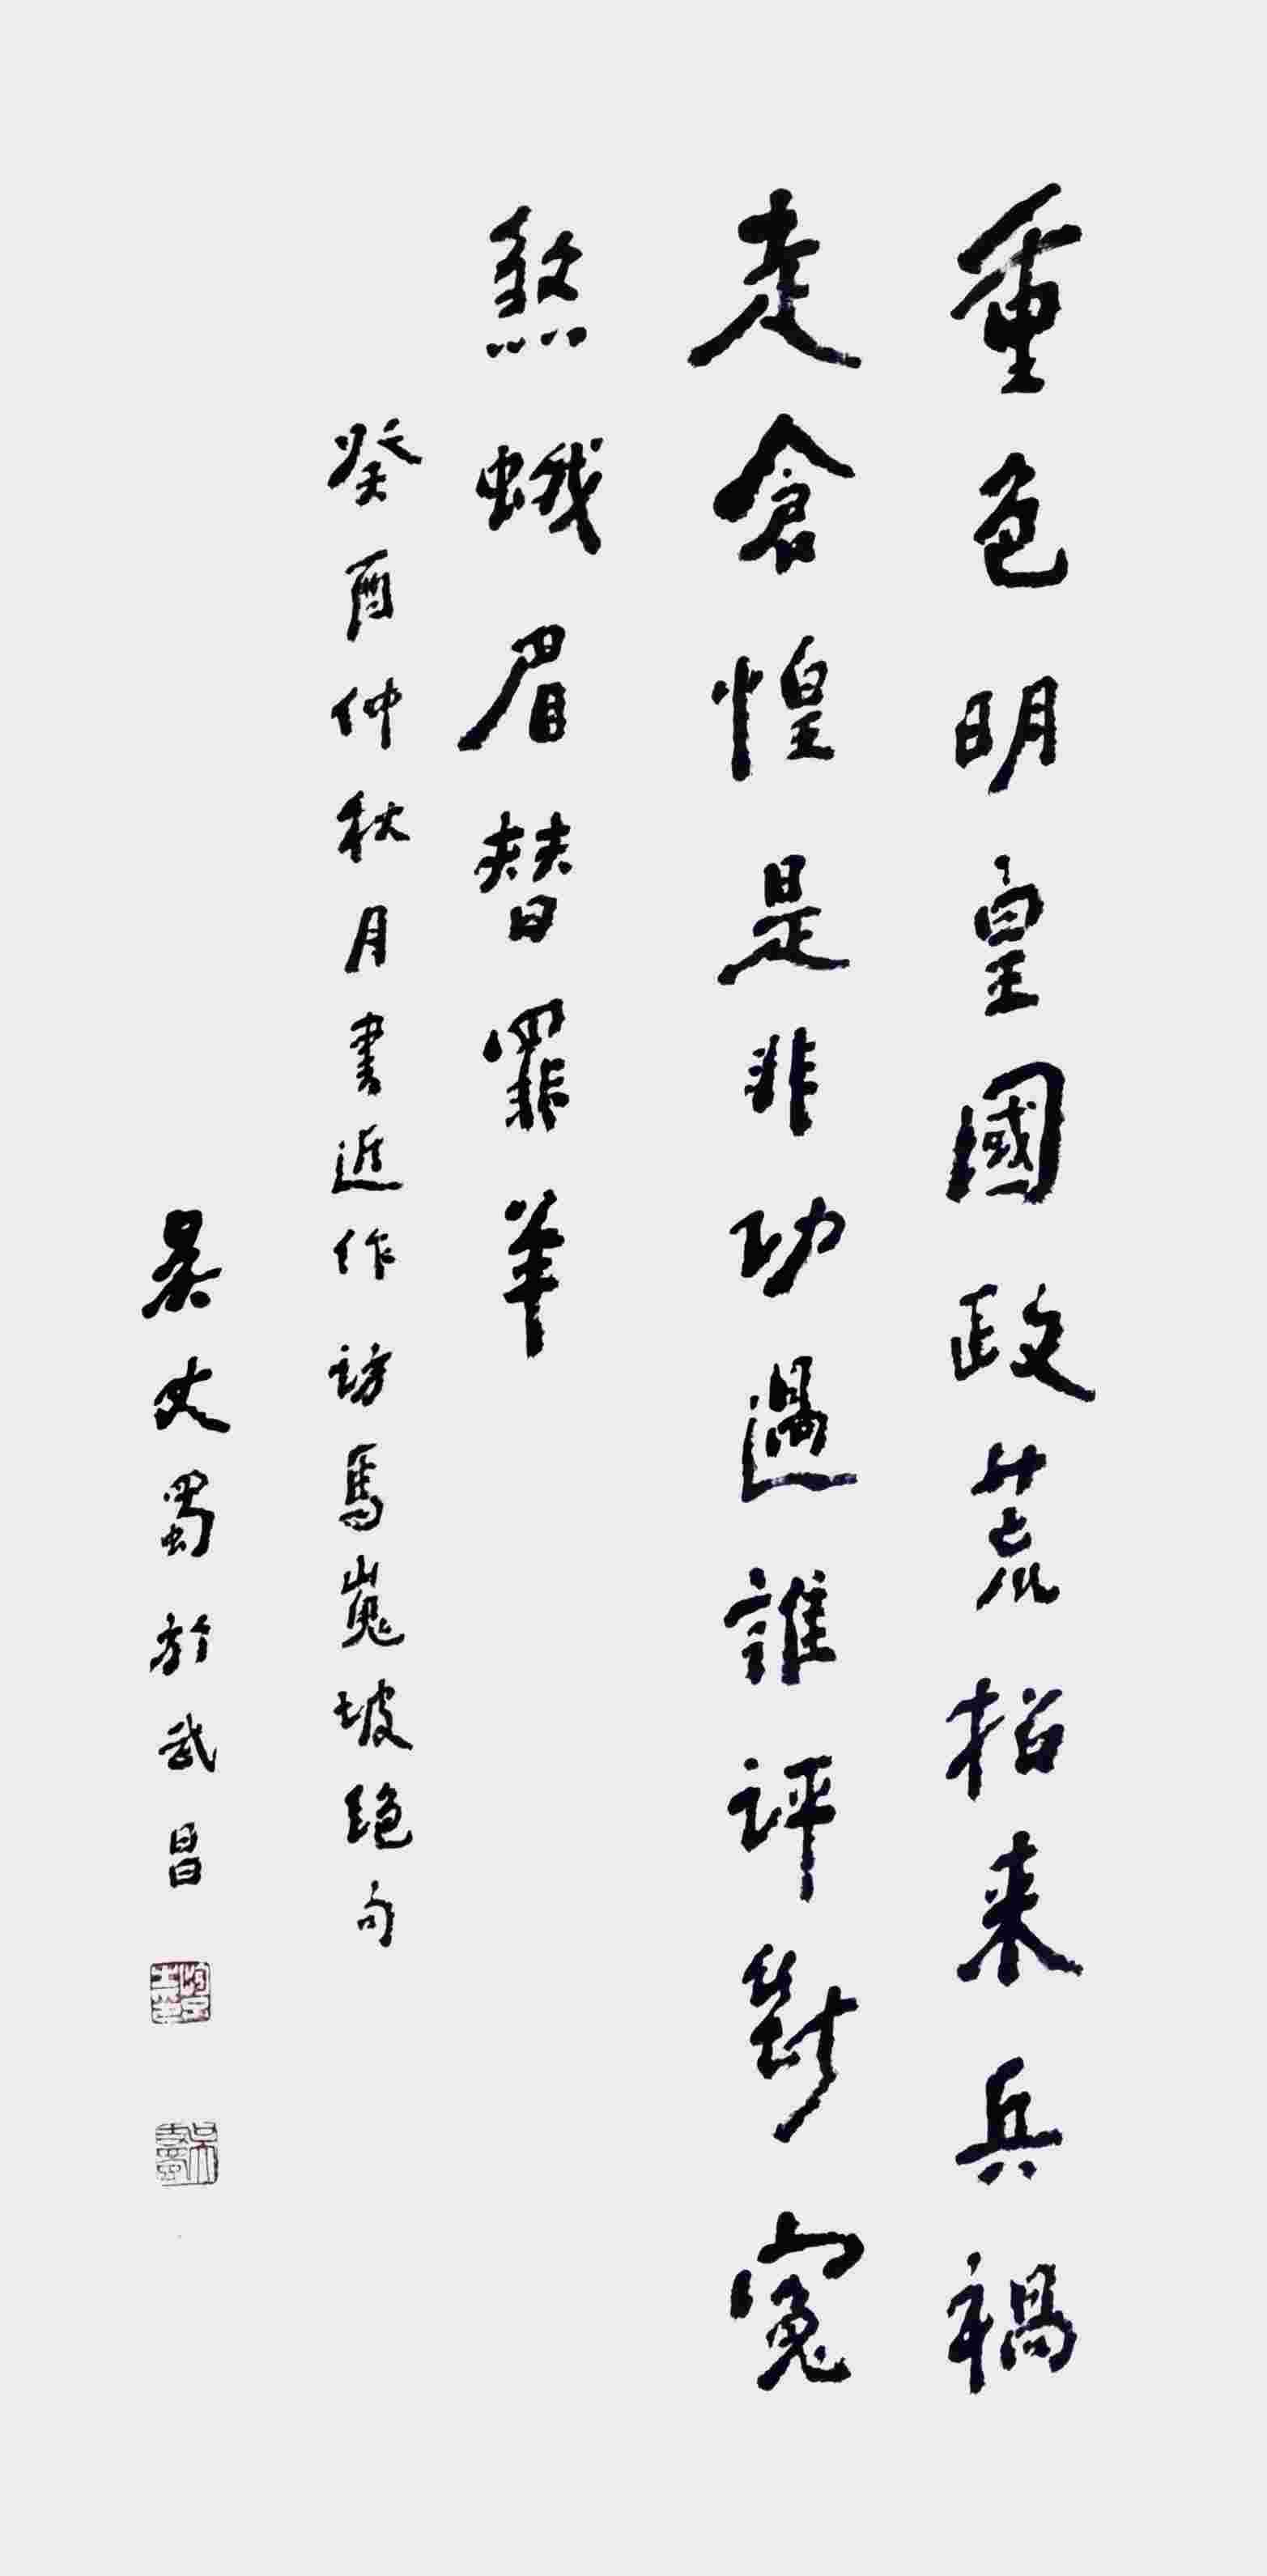 重色明皇國政荒招来兵禍
走倉惶是非功過誰評斷冤
煞蛾眉替罪羊
癸酉仲秋月書近作訪馬嵬坡絕句
吴丈蜀於武昌